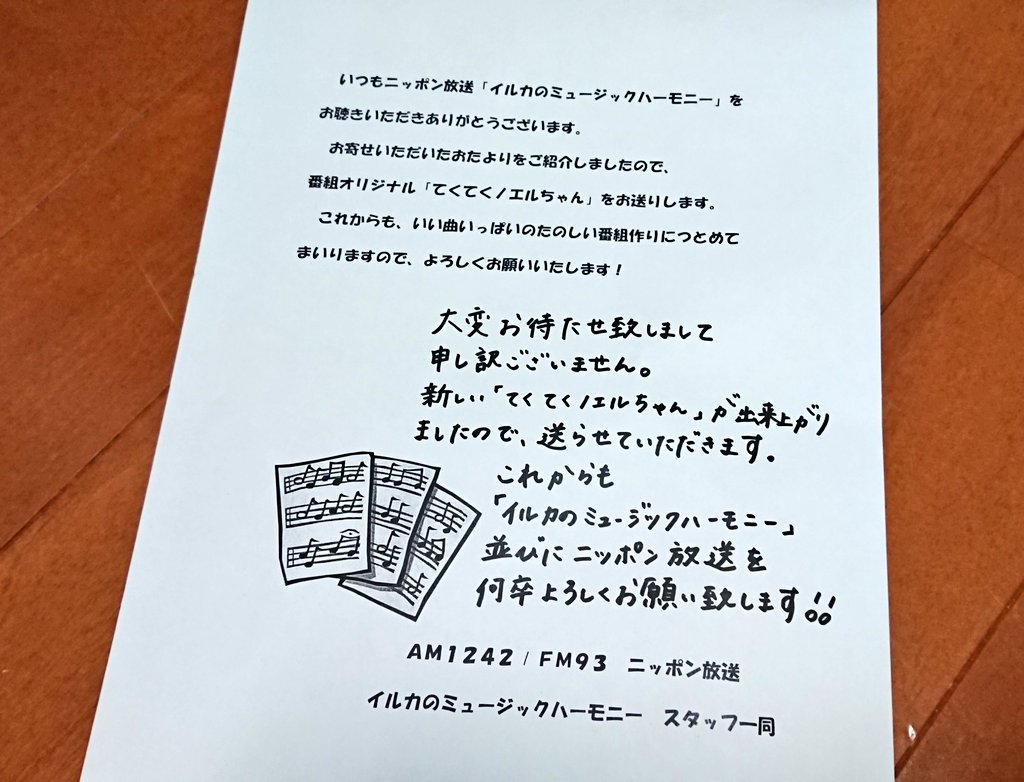 いつもニッポン放送「イルカのミュージックハーモニー」を
お聴きいただきありがとうございます。
お寄せいただいたおたよりをご紹介しましたので、
番組オリジナル「てくてくノエルちゃん」をお送りします。
これからも、いい曲いっぱいのたのしい番組作りにつとめて
まいりますので、よろしくお願いいたします！
大変お待たせ致しまして
申し訳ございません。
新しい「てくてくノエルちゃん」が出来上がり
ましたので、送らせていただきます。
これからも
「イルカのミュージックハーモニー」
並びにニッポン放送を
何卒よろしくお願い致します!!
AM1242 / FM93 ニッポン放送
イルカのミュージックハーモニー スタッフ一同